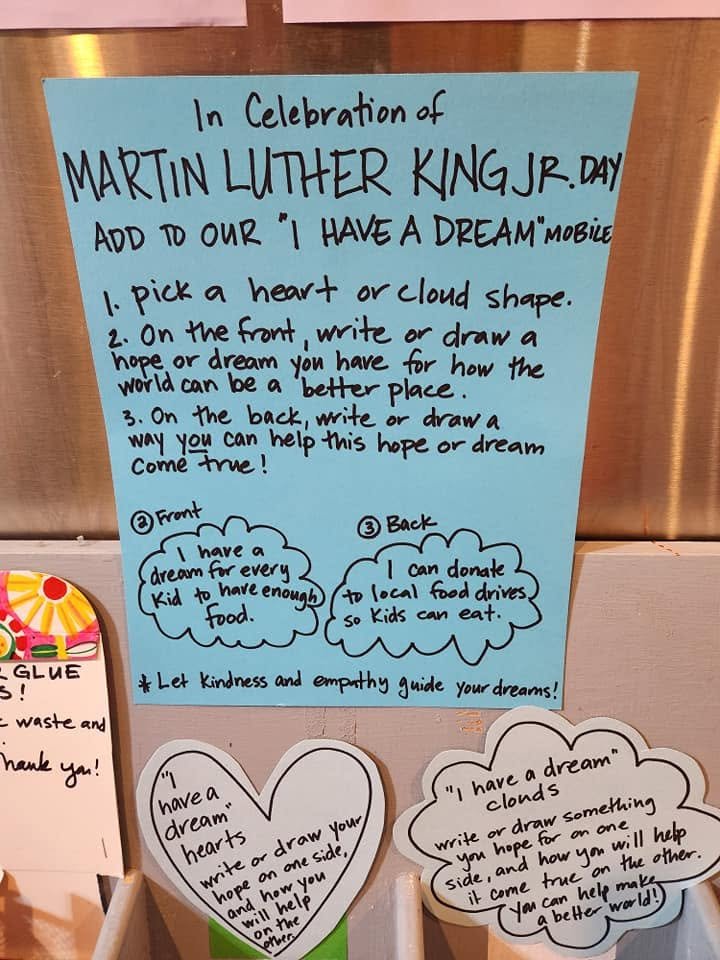 In Celebration of
MARTIN LUTHER KING JR. DAY
ADD TO OUR "I HAVE A DREAM" MOBILE
1. pick a heart or cloud shape.
2. On the front, write or draw a
hope or dream you have for how the
world can be a better place.
3. On the back, write or draw a
way you can help this hope or dream
come true!
② Front
I have a
dream for every
Kid to have enough
food.
③ Back
I can donate
to local food drives
so Kids can eat.
* Let Kindness and empathy guide your dreams!
GLUE
S!
waste and
Thank you!
"I
have a
dream"
hearts
write or draw your
hope on one side,
and how you
will help
on the
other.
"I have a dream"
clouds
write or draw something
you hope for on one
side, and how you will help
it come true on the other.
You can help make
a better world!